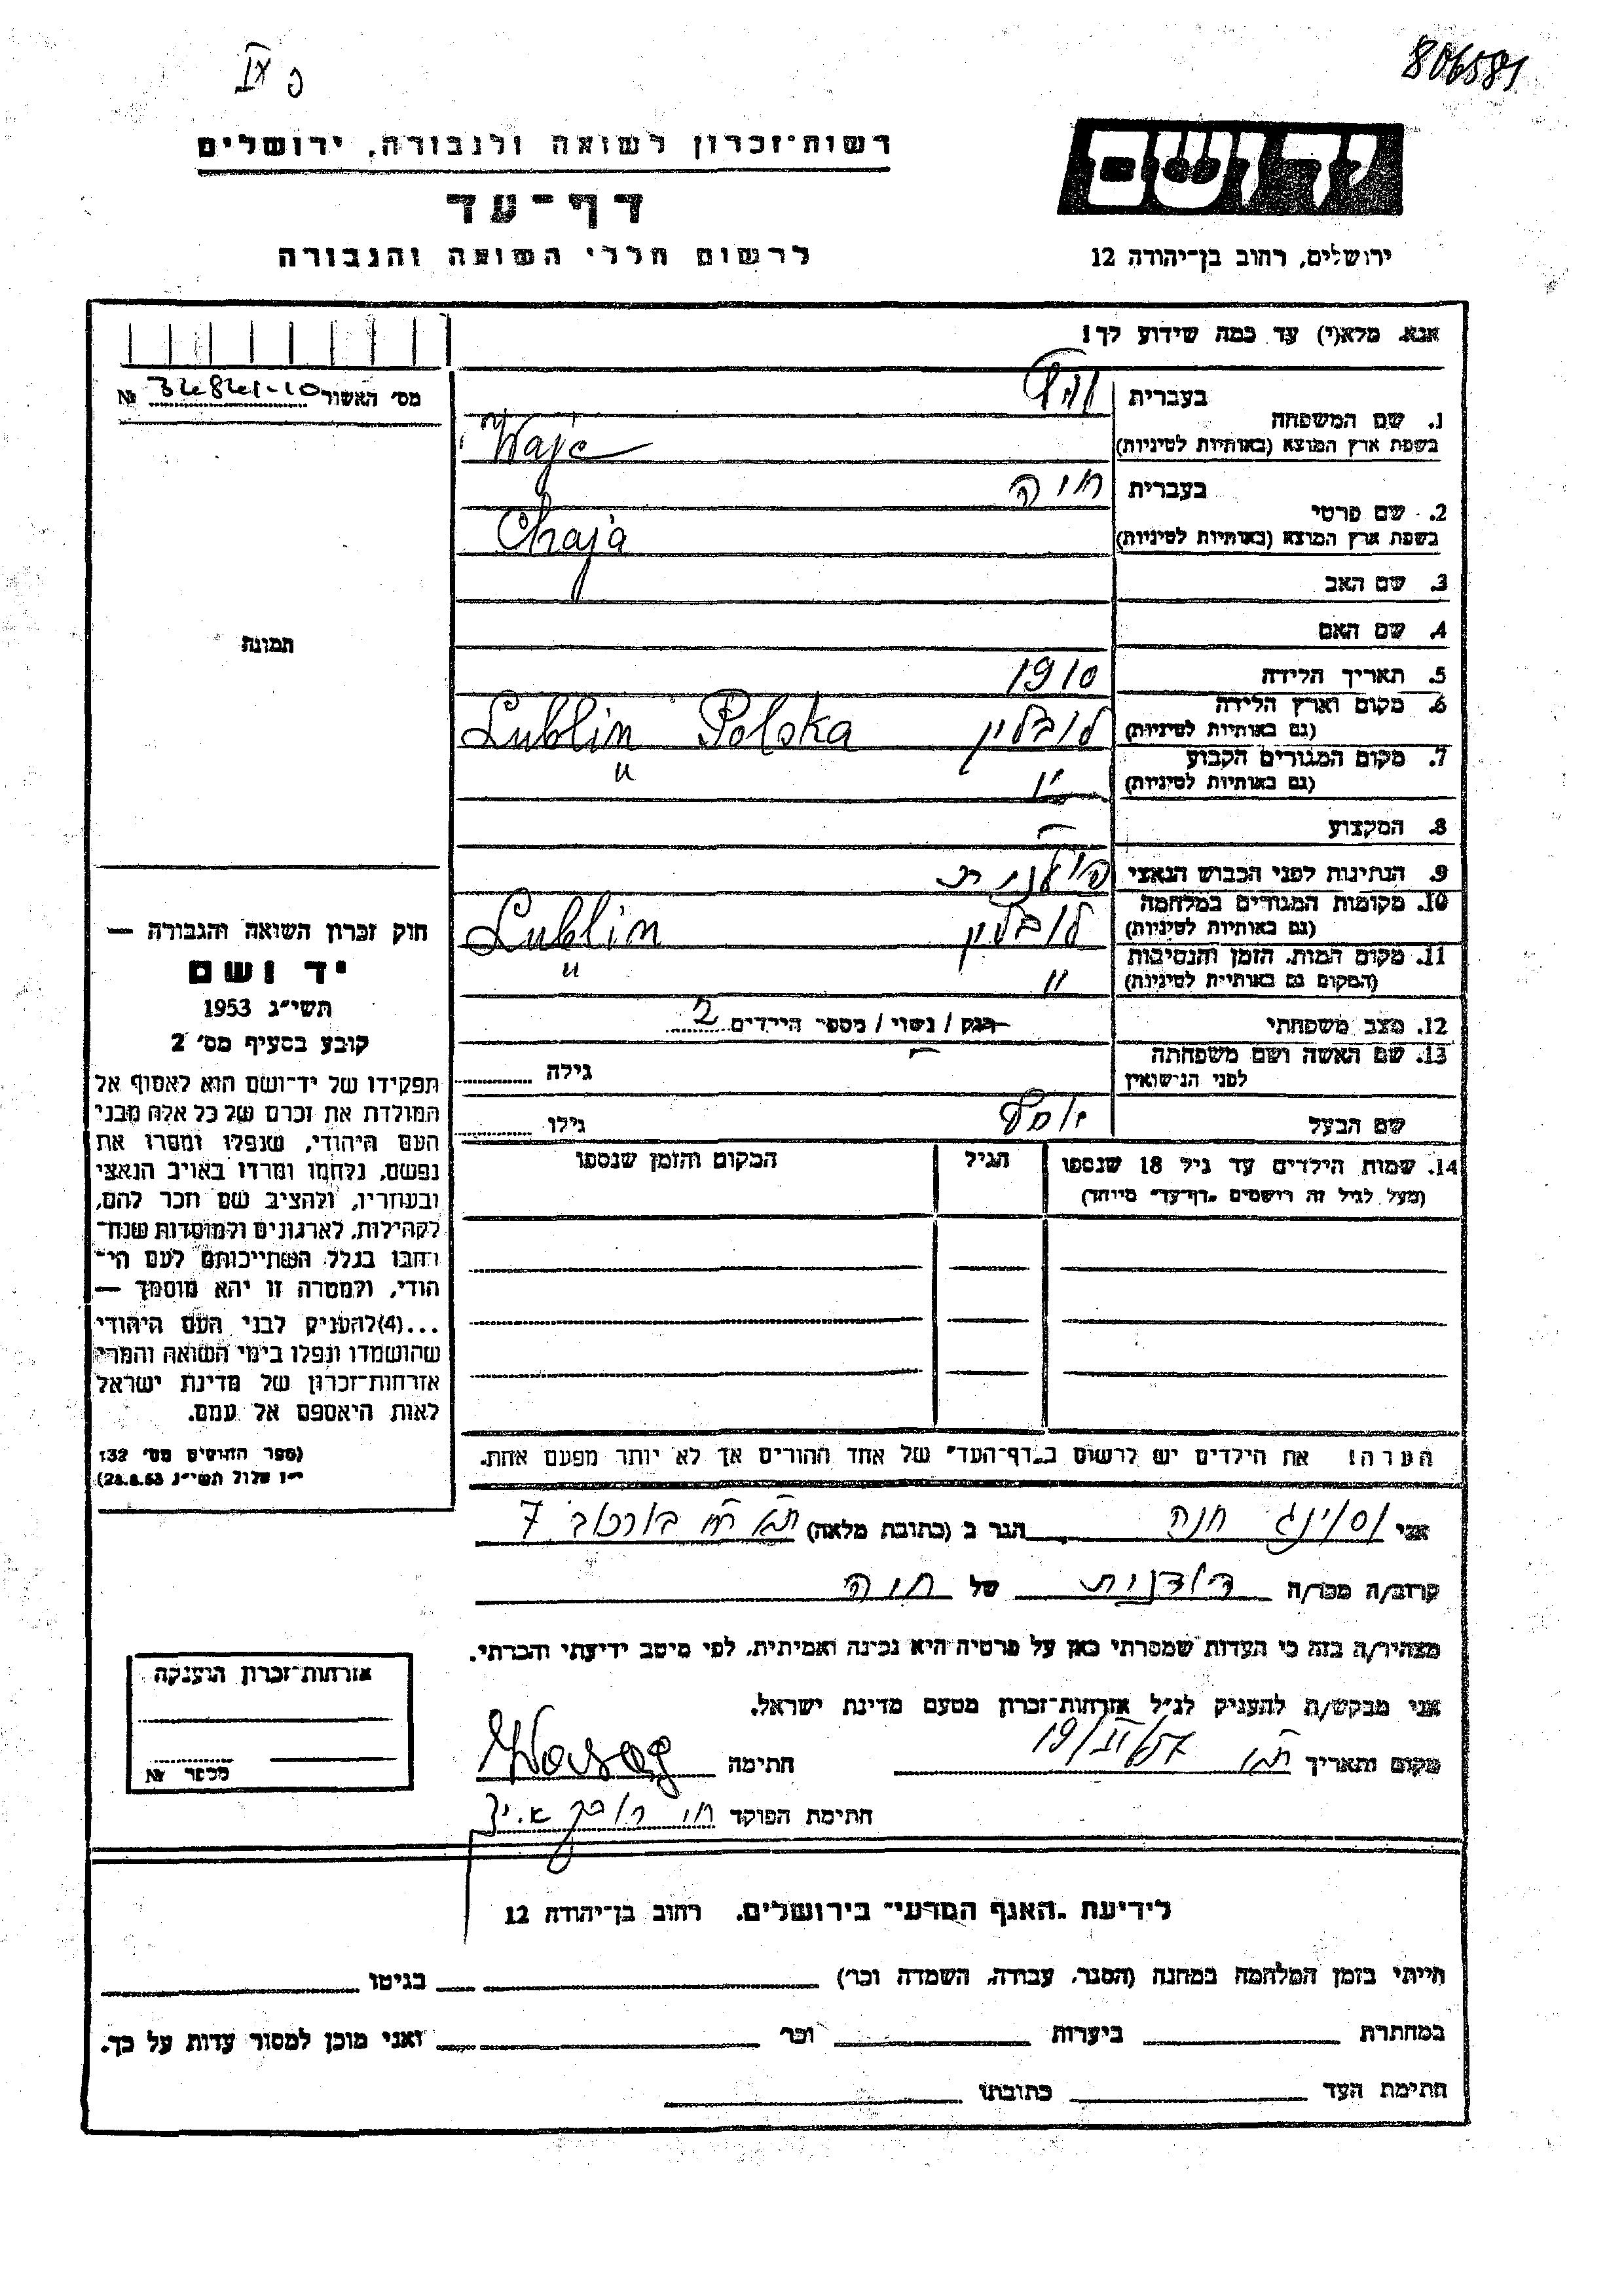 806581
פ IX
יד ושם
רשות־זכרון לשואה ולגבורה, ירושלים
דף־עד
לרשום חללי השואה והגבורה
ירושלים, רחוב בן־יהודה 12
אנא, מלא(י) עד כמה שידוע לך!
מס׳ האשור 34841-10 №
1. שם המשפחה
בעברית
בשפת ארץ המוצא (באותיות לטיניות) Wajc
2. שם פרטי
בעברית חיה
בשפת ארץ המוצא (באותיות לטיניות) Chaja
3. שם האב
4. שם האם
תמונה
5. תאריך הלידה 1910
6. מקום וארץ הלידה (גם באותיות לטיניות) לובלין Lublin Polska
7. מקום המגורים הקבוע (גם באותיות לטיניות) " "
8. המקצוע —
9. הנתינות לפני הכבוש הנאצי פולנית
10. מקומות המגורים במלחמה (גם באותיות לטיניות) לובלין Lublin
11. מקום המות, הזמן והנסיבות (המקום גם באותיות לטיניות) " "
12. מצב משפחתי רווק / נשוי / מספר הילדים 2
13. שם האשה ושם משפחתה לפני הנישואין — גילה
שם הבעל יוסף גילו
14. שמות הילדים עד גיל 18 שנספו (מעל לגיל זה רושמים „דף־עד״ מיוחד)
הגיל
המקום והזמן שנספו
חוק זכרון השואה והגבורה —
יד ושם
תשי״ג 1953
קובע בסעיף מס׳ 2
תפקידו של יד־ושם הוא לאסוף אל
המולדת את זכרם של כל אלה מבני
העם היהודי, שנפלו ומסרו את
נפשם, נלחמו ומרדו באויב הנאצי
ובעוזריו, ולהציב שם וזכר להם,
לקהילות, לארגונים ולמוסדות שנח־
רבו בגלל השתייכותם לעם הי־
הודי, ולמטרה זו יהא מוסמך —
...(4)להעניק לבני העם היהודי
שהושמדו ונפלו בימי השואה והמרי
אזרחות־זכרון של מדינת ישראל
לאות היאספם אל עמם.
(ספר החוקים מס׳ 132
י״ז אלול תשי״ג 28.8.53)
הערה! את הילדים יש לרשום ב„דף־העד״ של אחד ההורים אך לא יותר מפעם אחת.
אני חנה הגר ב (כתובת מלאה) 7
קרוב/ה מכר/ה דודנית של חיה
מצהיר/ה בזה כי העדות שמסרתי כאן על פרטיה היא נכונה ואמיתית, לפי מיטב ידיעתי והכרתי.
אני מבקש/ת להעניק לנ״ל אזרחות־זכרון מטעם מדינת ישראל.
מקום ותאריך חתימה
חתימת הפוקד
אזרחות־זכרון הוענקה
מספר №
לידיעת „האגף המדעי״ בירושלים, רחוב בן־יהודה 12
הייתי בזמן המלחמה במחנה (הסגר, עבודה, השמדה וכו׳) בגיטו
במחתרת ביערות וכו׳ ואני מוכן למסור עדות על כך.
חתימת העד כתובתו